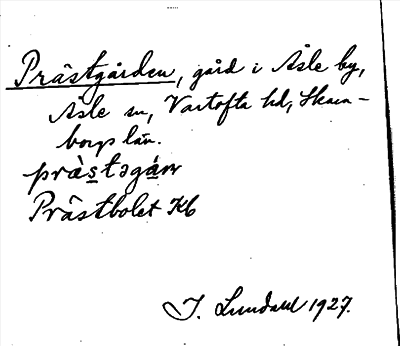 Prästgården, gård i Åsle by,
Åsle sn, Vartofta hd, Skara-
borgs län.
präs̲tɔgá̲ṇ
Prästbolet Kb
I. Lundahl 1927.